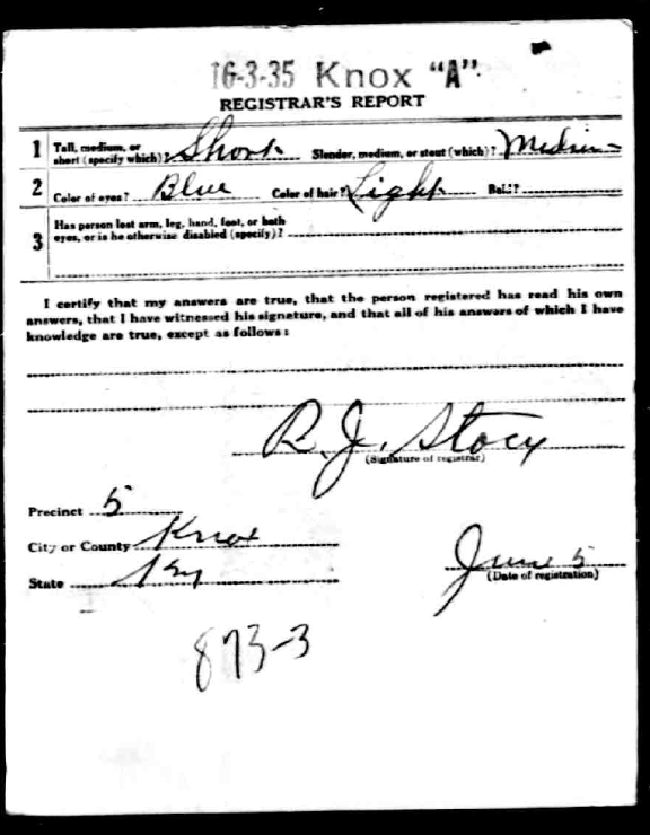 16-3-35 Knox "A".
REGISTRAR'S REPORT
1 Tall, medium, or short (specify which)? Short Slender, medium, or stout (which)? Medium
2 Color of eyes? Blue Color of hair? Light Bald?
3 Has person lost arm, leg, hand, foot, or both
eyes, or is he otherwise disabled (specify)?
I certify that my answers are true, that the person registered has read his own
answers, that I have witnessed his signature, and that all of his answers of which I have
knowledge are true, except as follows:
R. J. Stacy
(Signature of registrar)
Precinct 5
City or County Knox
State Ky
June 5
(Date of registration)
873-3